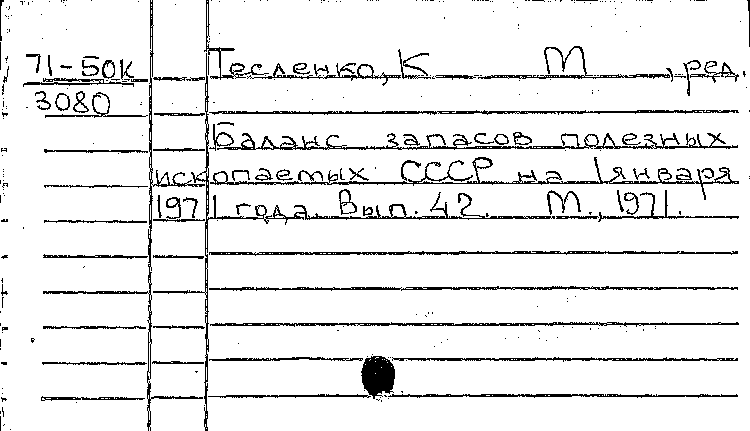 71-50К
3080
Тесленко, К М , ред.
Баланс запасов полезных
ископаемых СССР на 1 января
1971 года. Вып. 42. М., 1971.